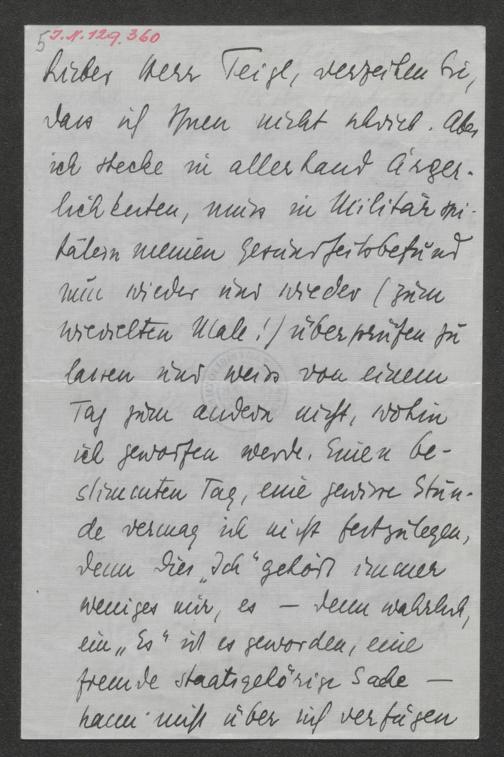 5 J.N. 129.360
Lieber Herr Teigl, verzeihen Sie,
dass ich Ihnen nicht schrieb. Aber
ich stecke in allerhand Ärger-
lichkeiten, muss in Militärspi-
tälern meinen Gesundheitsbefund
nun wieder und wieder (zum
wievielten Male!) überprüfen zu
lassen und weiss von einem
Tag zum andern nicht, wohin
ich geworfen werde. Einen be-
stimmten Tag, eine gewisse Stun-
de vermag ich nicht festzulegen,
denn dies „Ich“ gehört immer
weniges mir, es — denn wahrlich,
ein „Es“ ist es geworden, eine
fremde staatsgehörige Sache —
kann nicht über sich verfügen